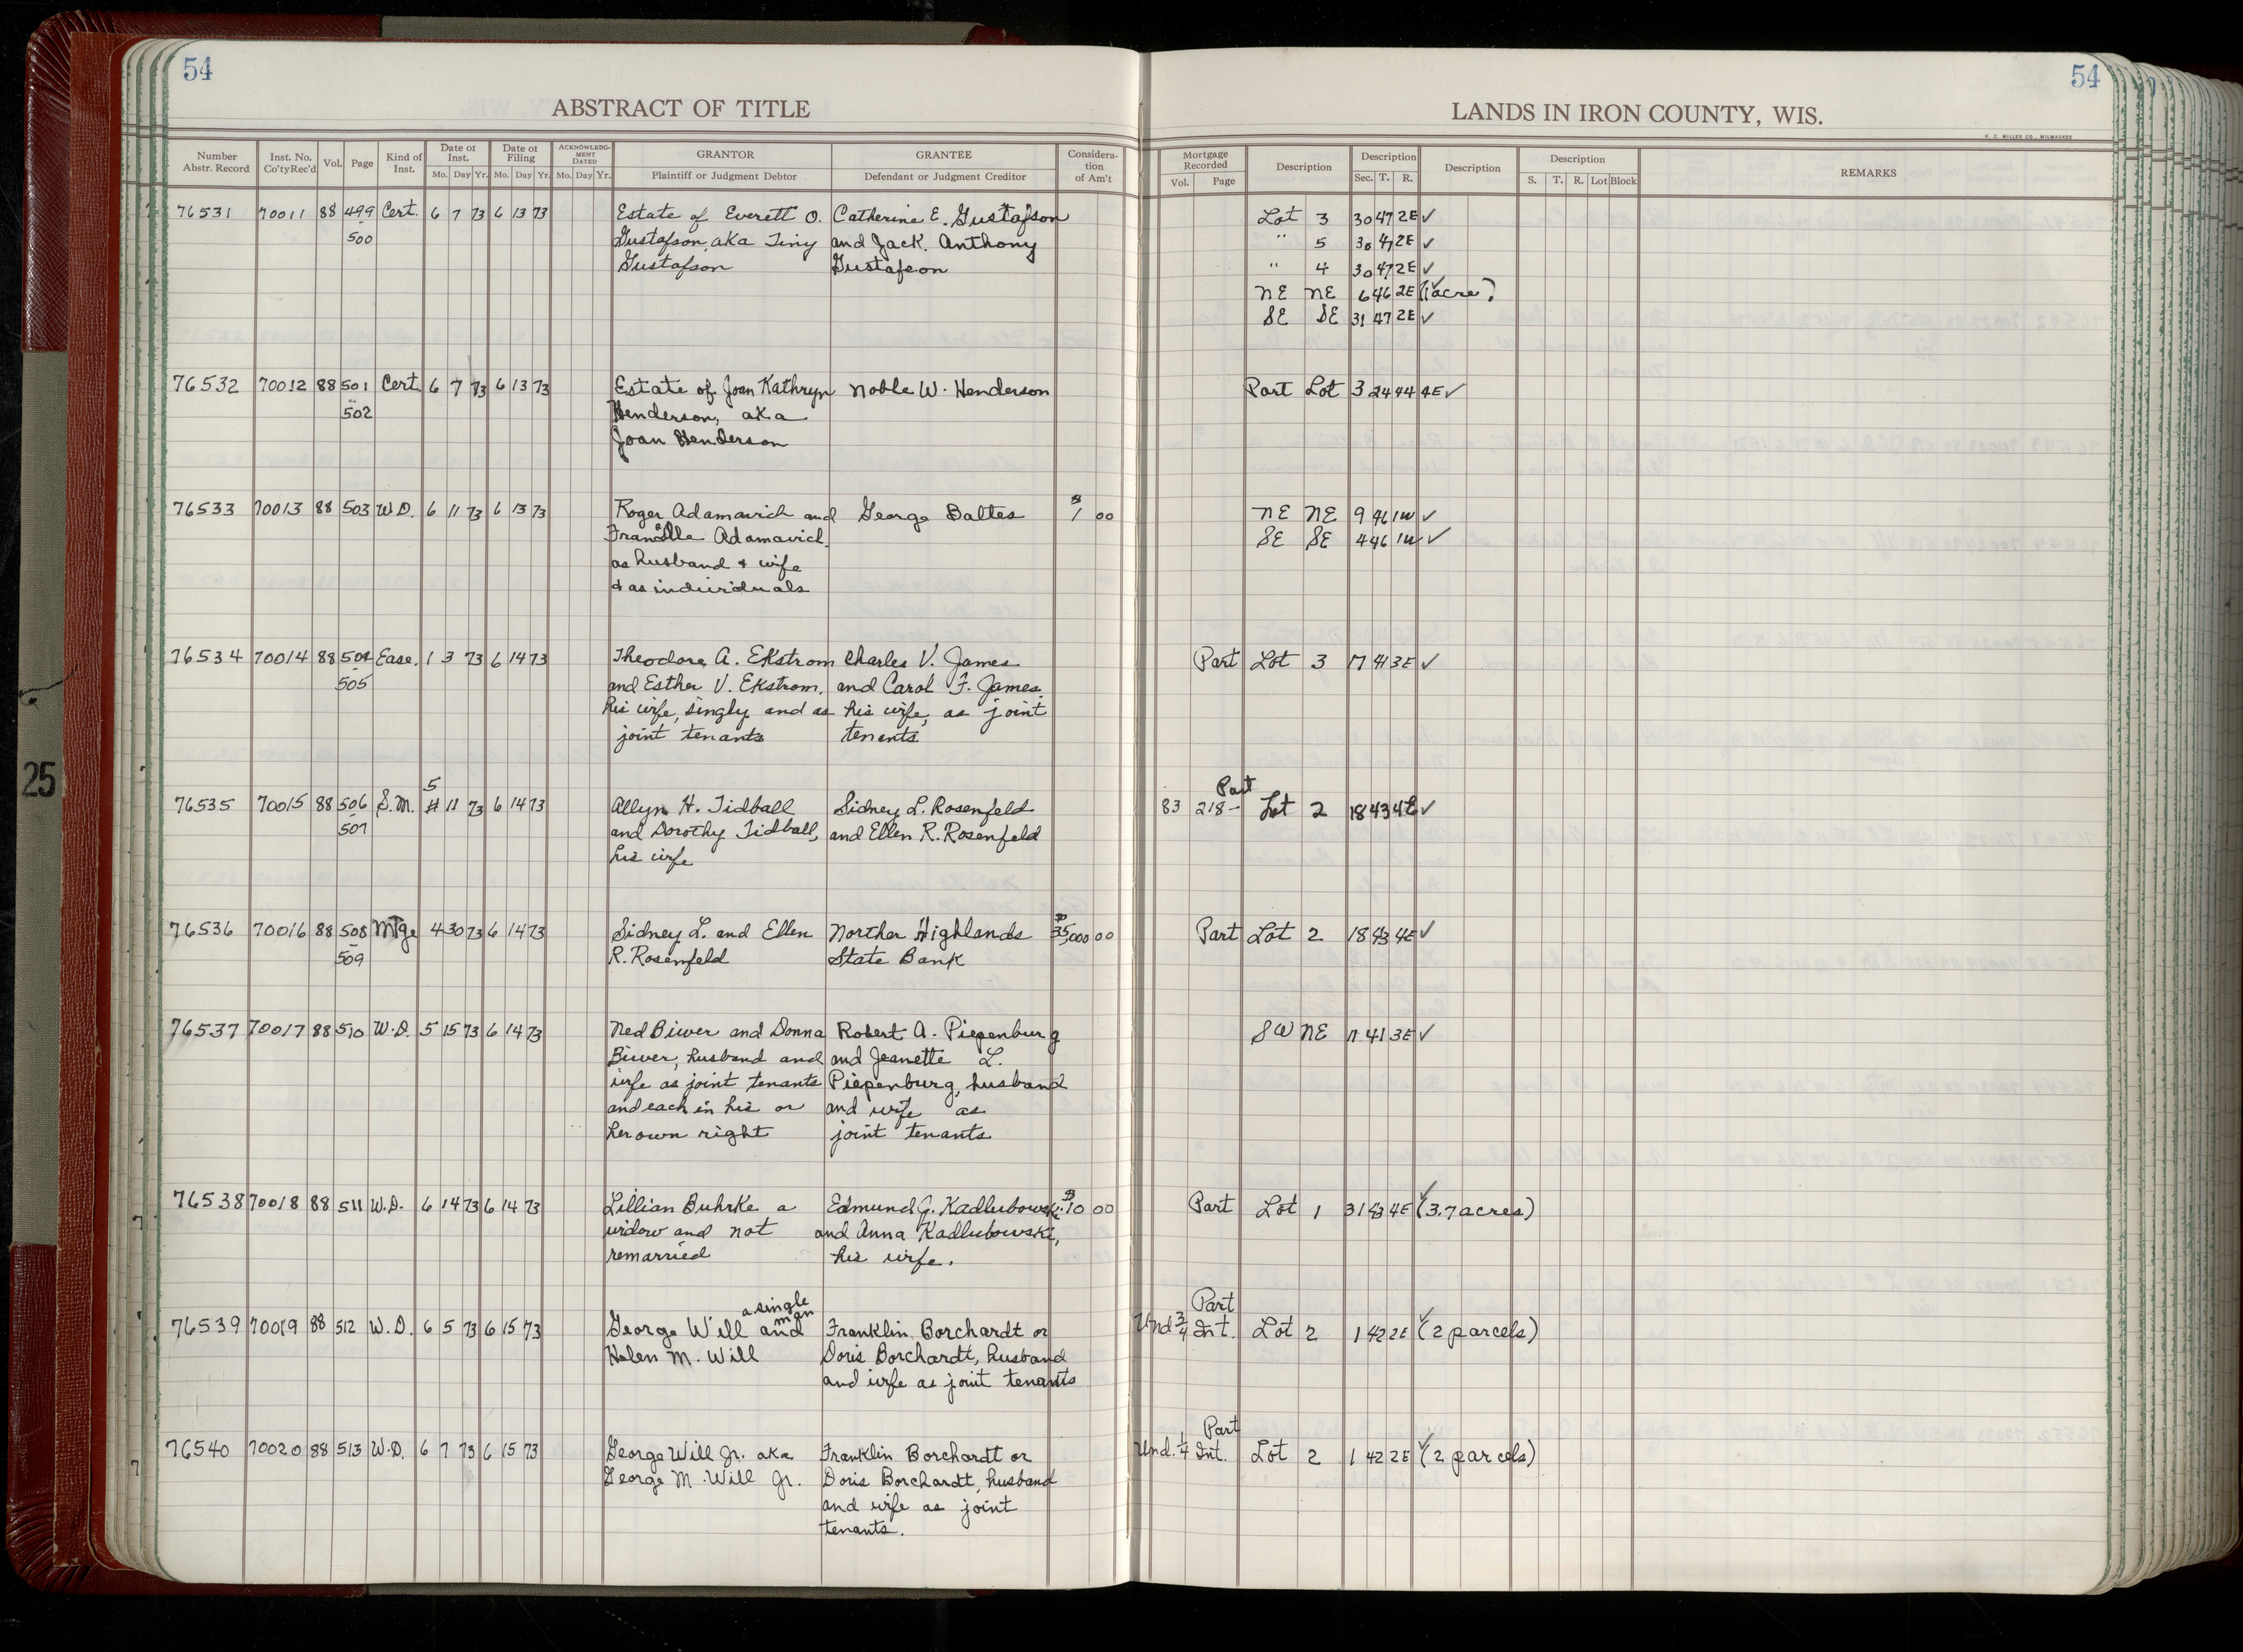 54
54
ABSTRACT OF TITLE
LANDS IN IRON COUNTY, WIS.
Number Abstr. Record | Inst. No. Co'ty Rec'd | Vol. | Page | Kind of Inst. | Date of Inst. Mo. Day Yr. | Date of Filing Mo. Day Yr. | ACKNOWLEDGMENT DATED Mo. Day Yr. | GRANTOR Plaintiff or Judgment Debtor | GRANTEE Defendant or Judgment Creditor | Consideration of Am't | Mortgage Recorded Vol. Page | Description | Description Sec. T. R. | Description | Description S. T. R. Lot Block | REMARKS
76531 70011 88 499 Cert. 6 7 73 6 13 73 Estate of Everett O. Catherine E. Gustafson Lot 3 30 47 2E ✓
500 Gustafson, aka Tiny and Jack. Anthony " 5 30 47 2E ✓
Gustafson Gustafson " 4 30 47 2E ✓
NE NE 6 46 2E ✓ (1 acre)
SE SE 31 47 2E ✓
76532 70012 88 501 Cert. 6 7 73 6 13 73 Estate of Joan Kathryn Noble W. Henderson Part Lot 3 24 44 4E ✓
502 Henderson, aka
Joan Henderson
76533 70013 88 503 W.D. 6 11 73 6 13 73 Roger Adamavich and George Baltes $1 00 NE NE 9 46 1W ✓
Adamavich, SE SE 4 46 1W ✓
as husband + wife
+ as individuals
76534 70014 88 504 Ease. 1 3 73 6 14 73 Theodore A. Ekstrom Charles V. James Part Lot 3 17 41 3E ✓
505 and Esther V. Ekstrom, and Carol F. James,
his wife, singly and as his wife, as joint
joint tenants tenents
76535 70015 88 506 S.M. 5 11 73 6 14 73 Allyn H. Tidball Sidney L. Rosenfeld 83 218- Part Lot 2 18 43 4E ✓
507 and Dorothy Tidball, and Ellen R. Rosenfeld
his wife
76536 70016 88 508 Mtge 4 30 73 6 14 73 Sidney L. and Ellen Norther Highlands $35,000 00 Part Lot 2 18 43 4E ✓
509 R. Rosenfeld State Bank
76537 70017 88 510 W.D. 5 15 73 6 14 73 Ned Biwer and Donna Robert A. Piepenburg SW NE 17 41 3E ✓
Biwer, husband and and Jeanette L.
wife as joint tenants Piepenburg, husband
and each in his or and wife as
her own right joint tenants
76538 70018 88 511 W.D. 6 14 73 6 14 73 Lillian Buhrke a Edmund G. Kadlubowski $10 00 Part Lot 1 31 43 4E ✓ (3.7 acres)
widow and not and Anna Kadlubowski,
remarried his wife.
a single man Part
76539 70019 88 512 W.D. 6 5 73 6 15 73 George Will and Franklin Borchardt or Und 3/4 Int. Lot 2 1 42 2E ✓ (2 parcels)
Helen M. Will Doris Borchardt, husband
and wife as joint tenants
Part
76540 70020 88 513 W.D. 6 7 73 6 15 73 George Will Jr. aka Franklin Borchardt or Und. 1/4 Int. Lot 2 1 42 2E ✓ (2 parcels)
George M. Will Jr. Doris Borchardt, husband
and wife as joint
tenants.
25